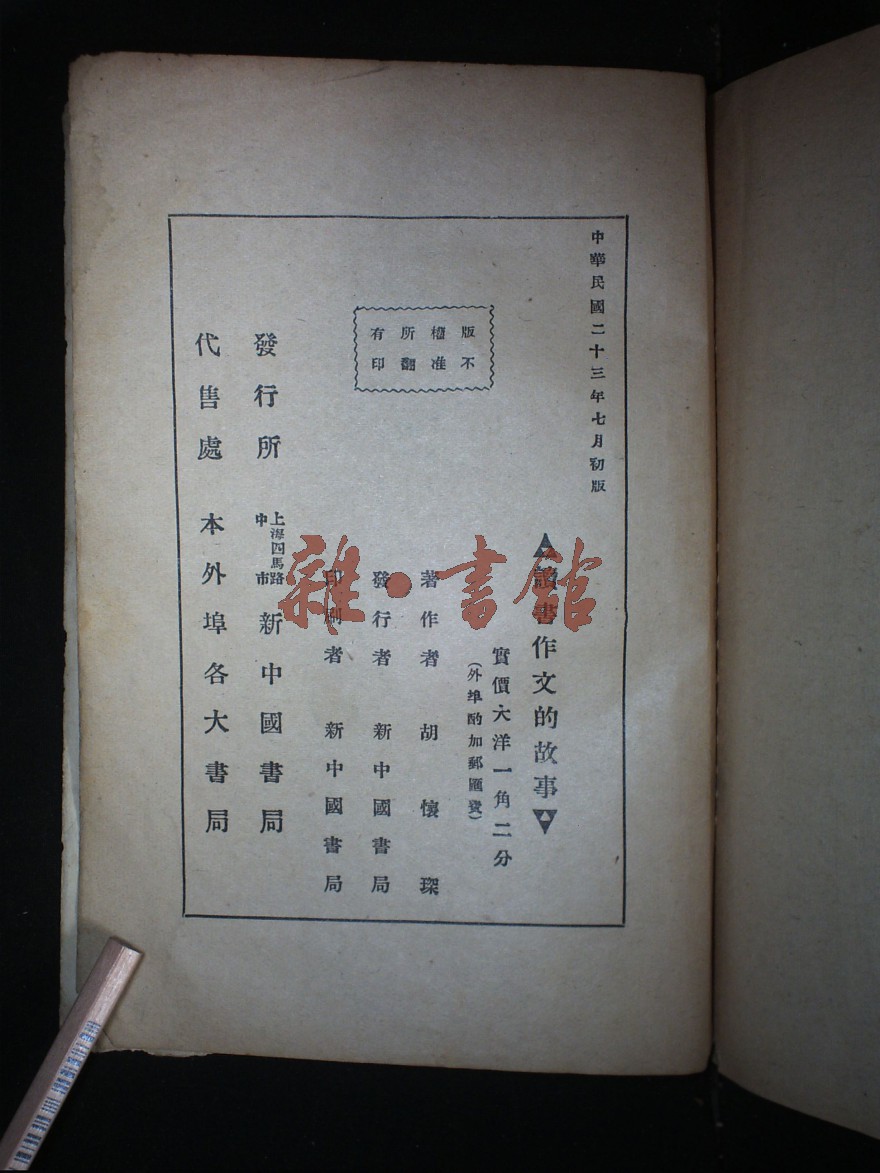 中華民國二十三年七月初版
讀書作文的故事
實價大洋一角二分
(外埠酌加郵匯費)
版權所有
不准翻印
著作者 胡懷琛
發行者 新中國書局
印刷者 新中國書局
發行所 上海四馬路中市 新中國書局
代售處 本外埠各大書局
雜·書館